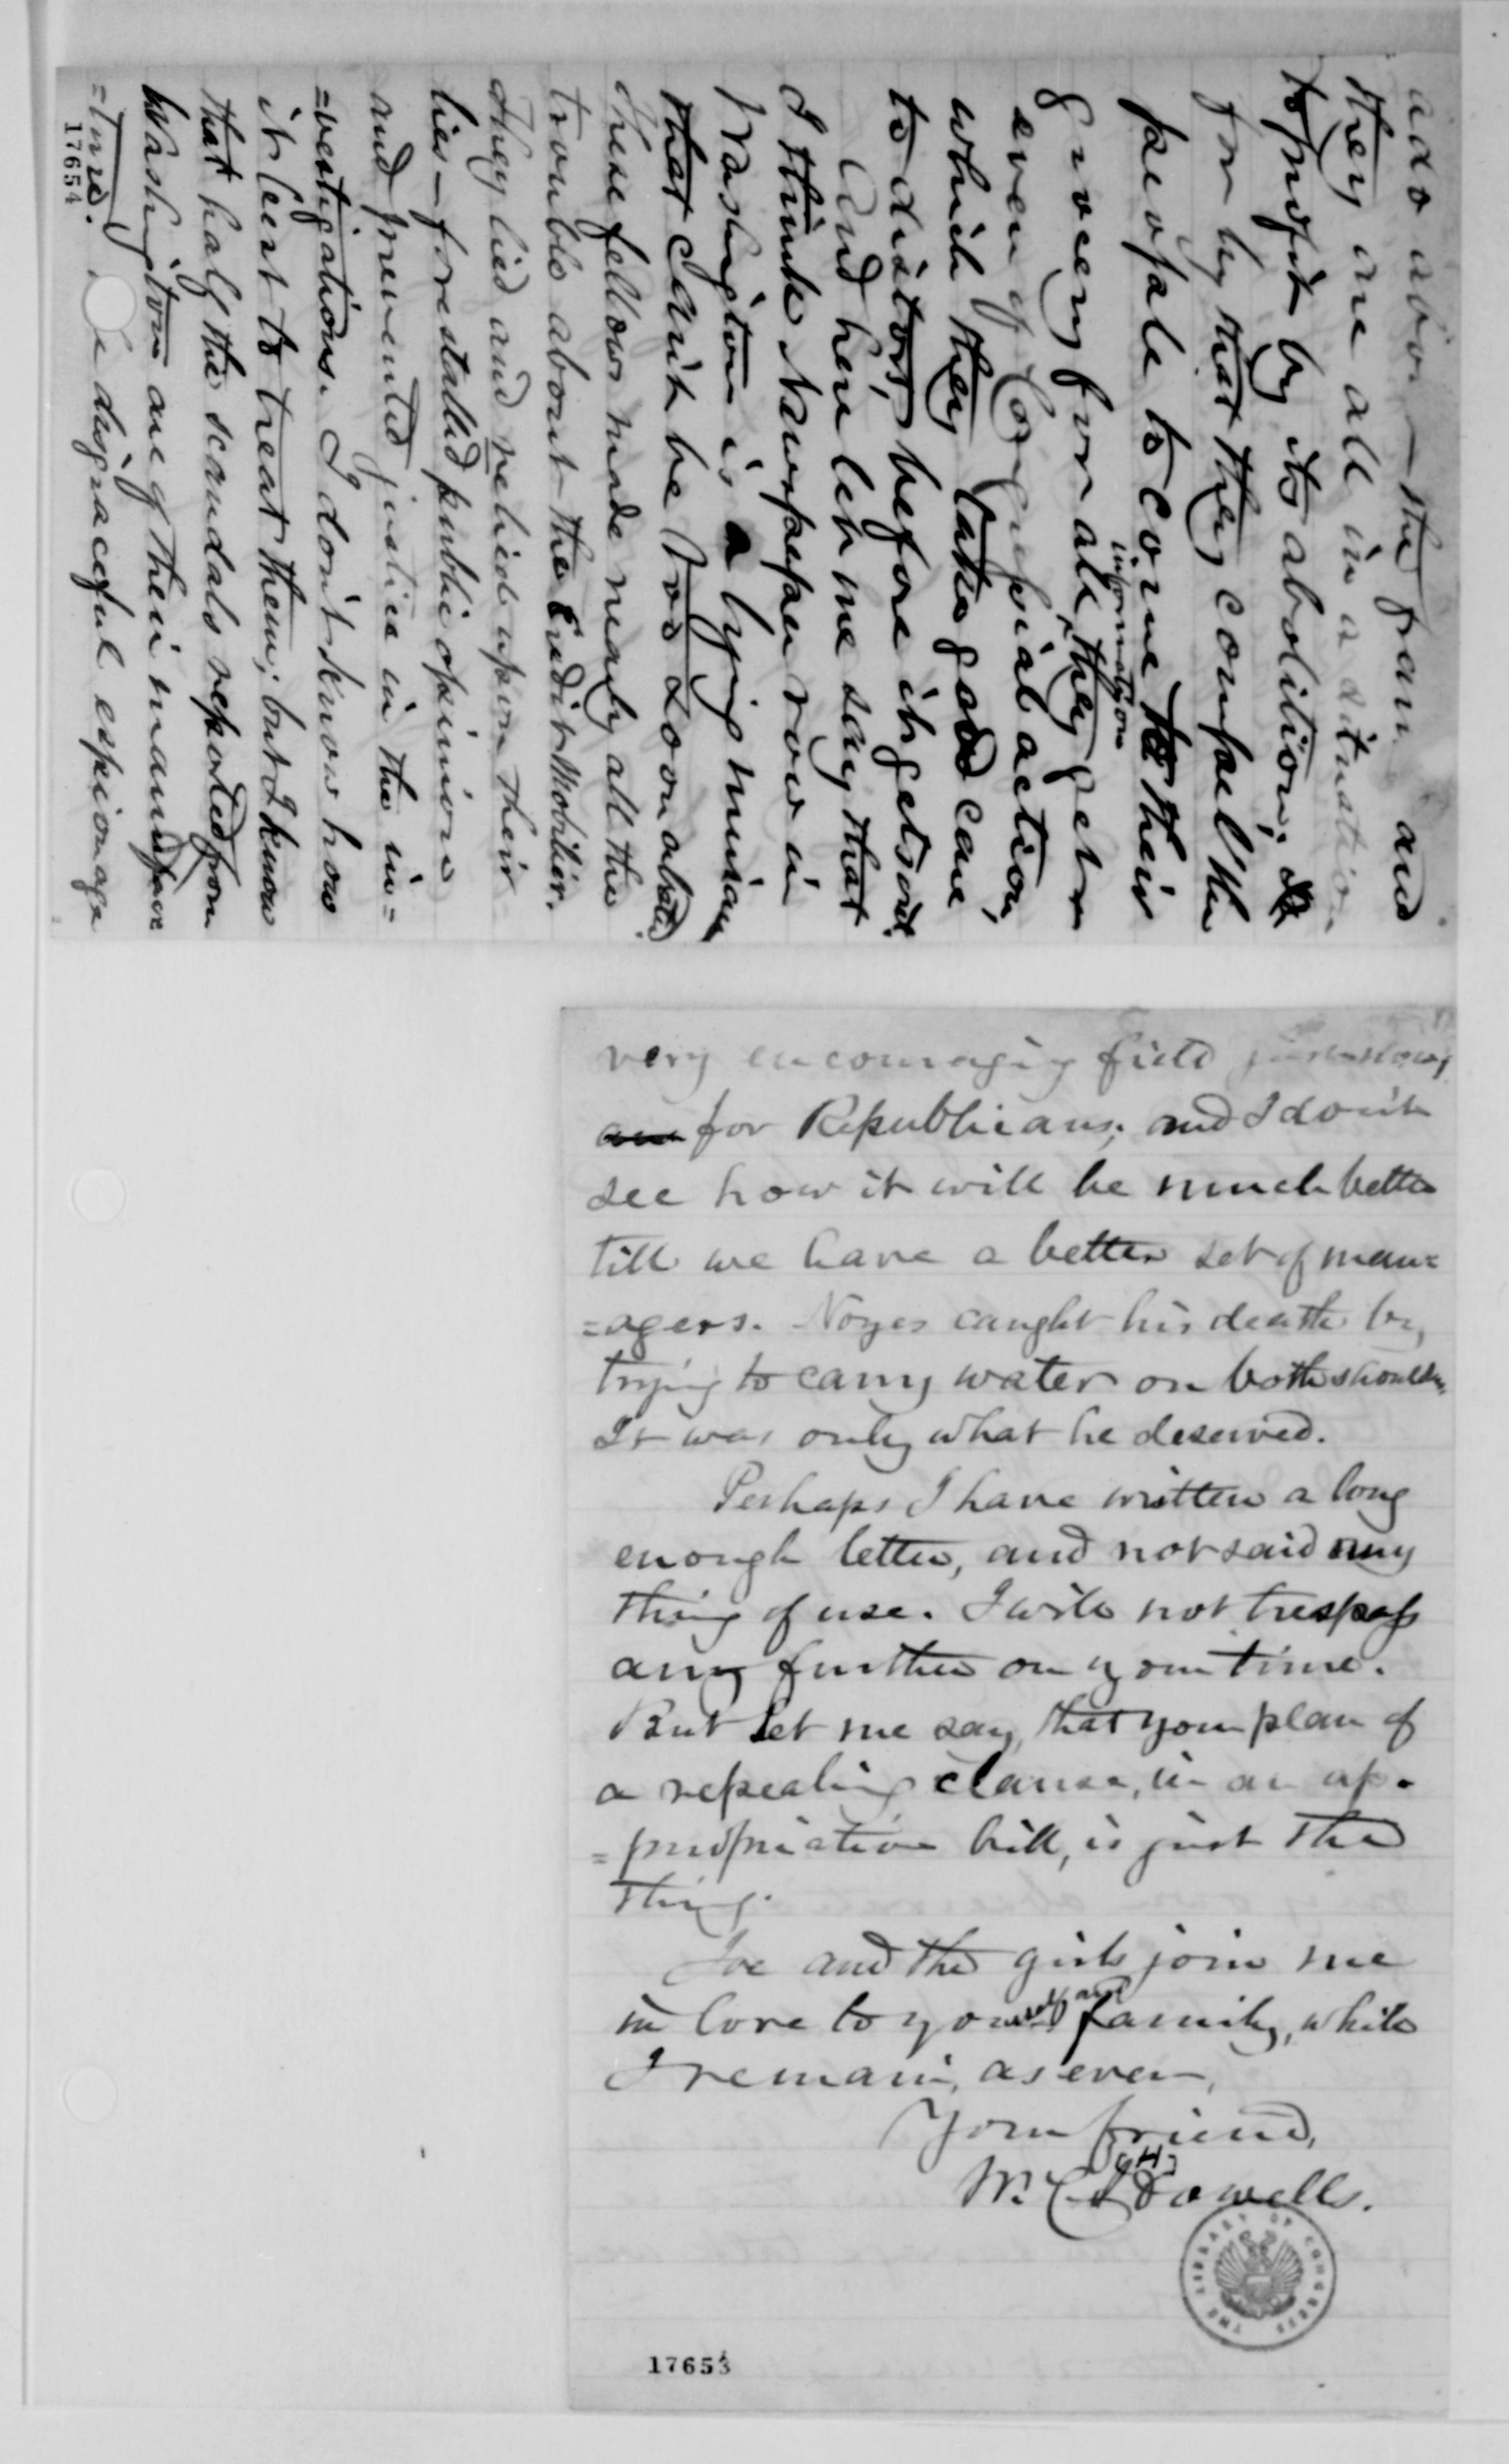 ado about the frank and
they are all in a situation
to profit by its abolition;
for by that they compel the
people to come to their
grocery for all information they get
even of Congressional action,
which they take good care
to distort, before it gets out.
And here let me say that
I think Newspaper row in
Washington is a lying nuisance
that can't be too soon abated.
These fellows made nearly all the
trouble about the Credit Mobilier.
They lied and relied upon their
lies — forestalled public opinion
and prevented justice in the in=
=vestigations. I don't know how
it best to treat them; but I know
that half the scandals reported from
Washington are of their manufac
=ture. The disgraceful espionage
17654
very encouraging field just now,
for Republicans; and I don't
see how it will be much better
till we have a better set of man=
=agers. Noyes caught his death by
trying to carry water on both shoulders.
It was only what he deserved.
Perhaps I have written a long
enough letter, and not said any
thing of use. I will not trespass
any further on your time.
But let me say, that your plan of
a repealing clause, in an ap-
=propriation bill, is just the
thing.
Joe and the girls join me
in love to yourself and family, while
I remain, as ever,
Your friend,
W. C. Howells.
[H]
THE LIBRARY OF CONGRESS
17653